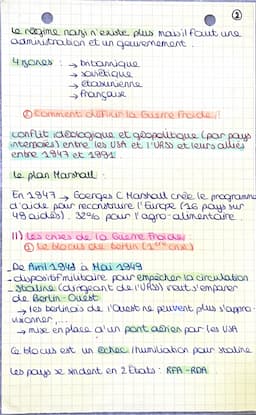 ②
Le régime nazi n'existe plus mais il faut une
administration et un gouvernement.
4 zones : → britannique
→ soviétique
→ étasunienne
→ française
② Comment définir la Guerre Froide ?
conflit idéologique et géopolitique (par pays
interposés) entre les USA et l'URSS et leurs alliés
entre 1947 et 1991.
Le plan Marshall :
En 1947 → Goerges C Marshall crée le programme
d'aide pour reconstruire l'Europe (16 pays sur
48 aidés). 32% pour l'agro-alimentaire.
II) Les crises de la Guerre Froide
① Le blocus de Berlin (1ère crise)
- De Avril 1948 à Mai 1949
- dispositif militaire pour empêcher la circulation
- Staline (dirigeant de l'URSS) veut s'emparer
de Berlin-Ouest
→ les berlinois de l'Ouest ne peuvent plus s'appro-
visionner,...
→ mise en place d'un pont aérien par les USA
Ce blocus est un échec/humiliation pour Staline
Les pays se scindent en 2 États : RFA - RDA